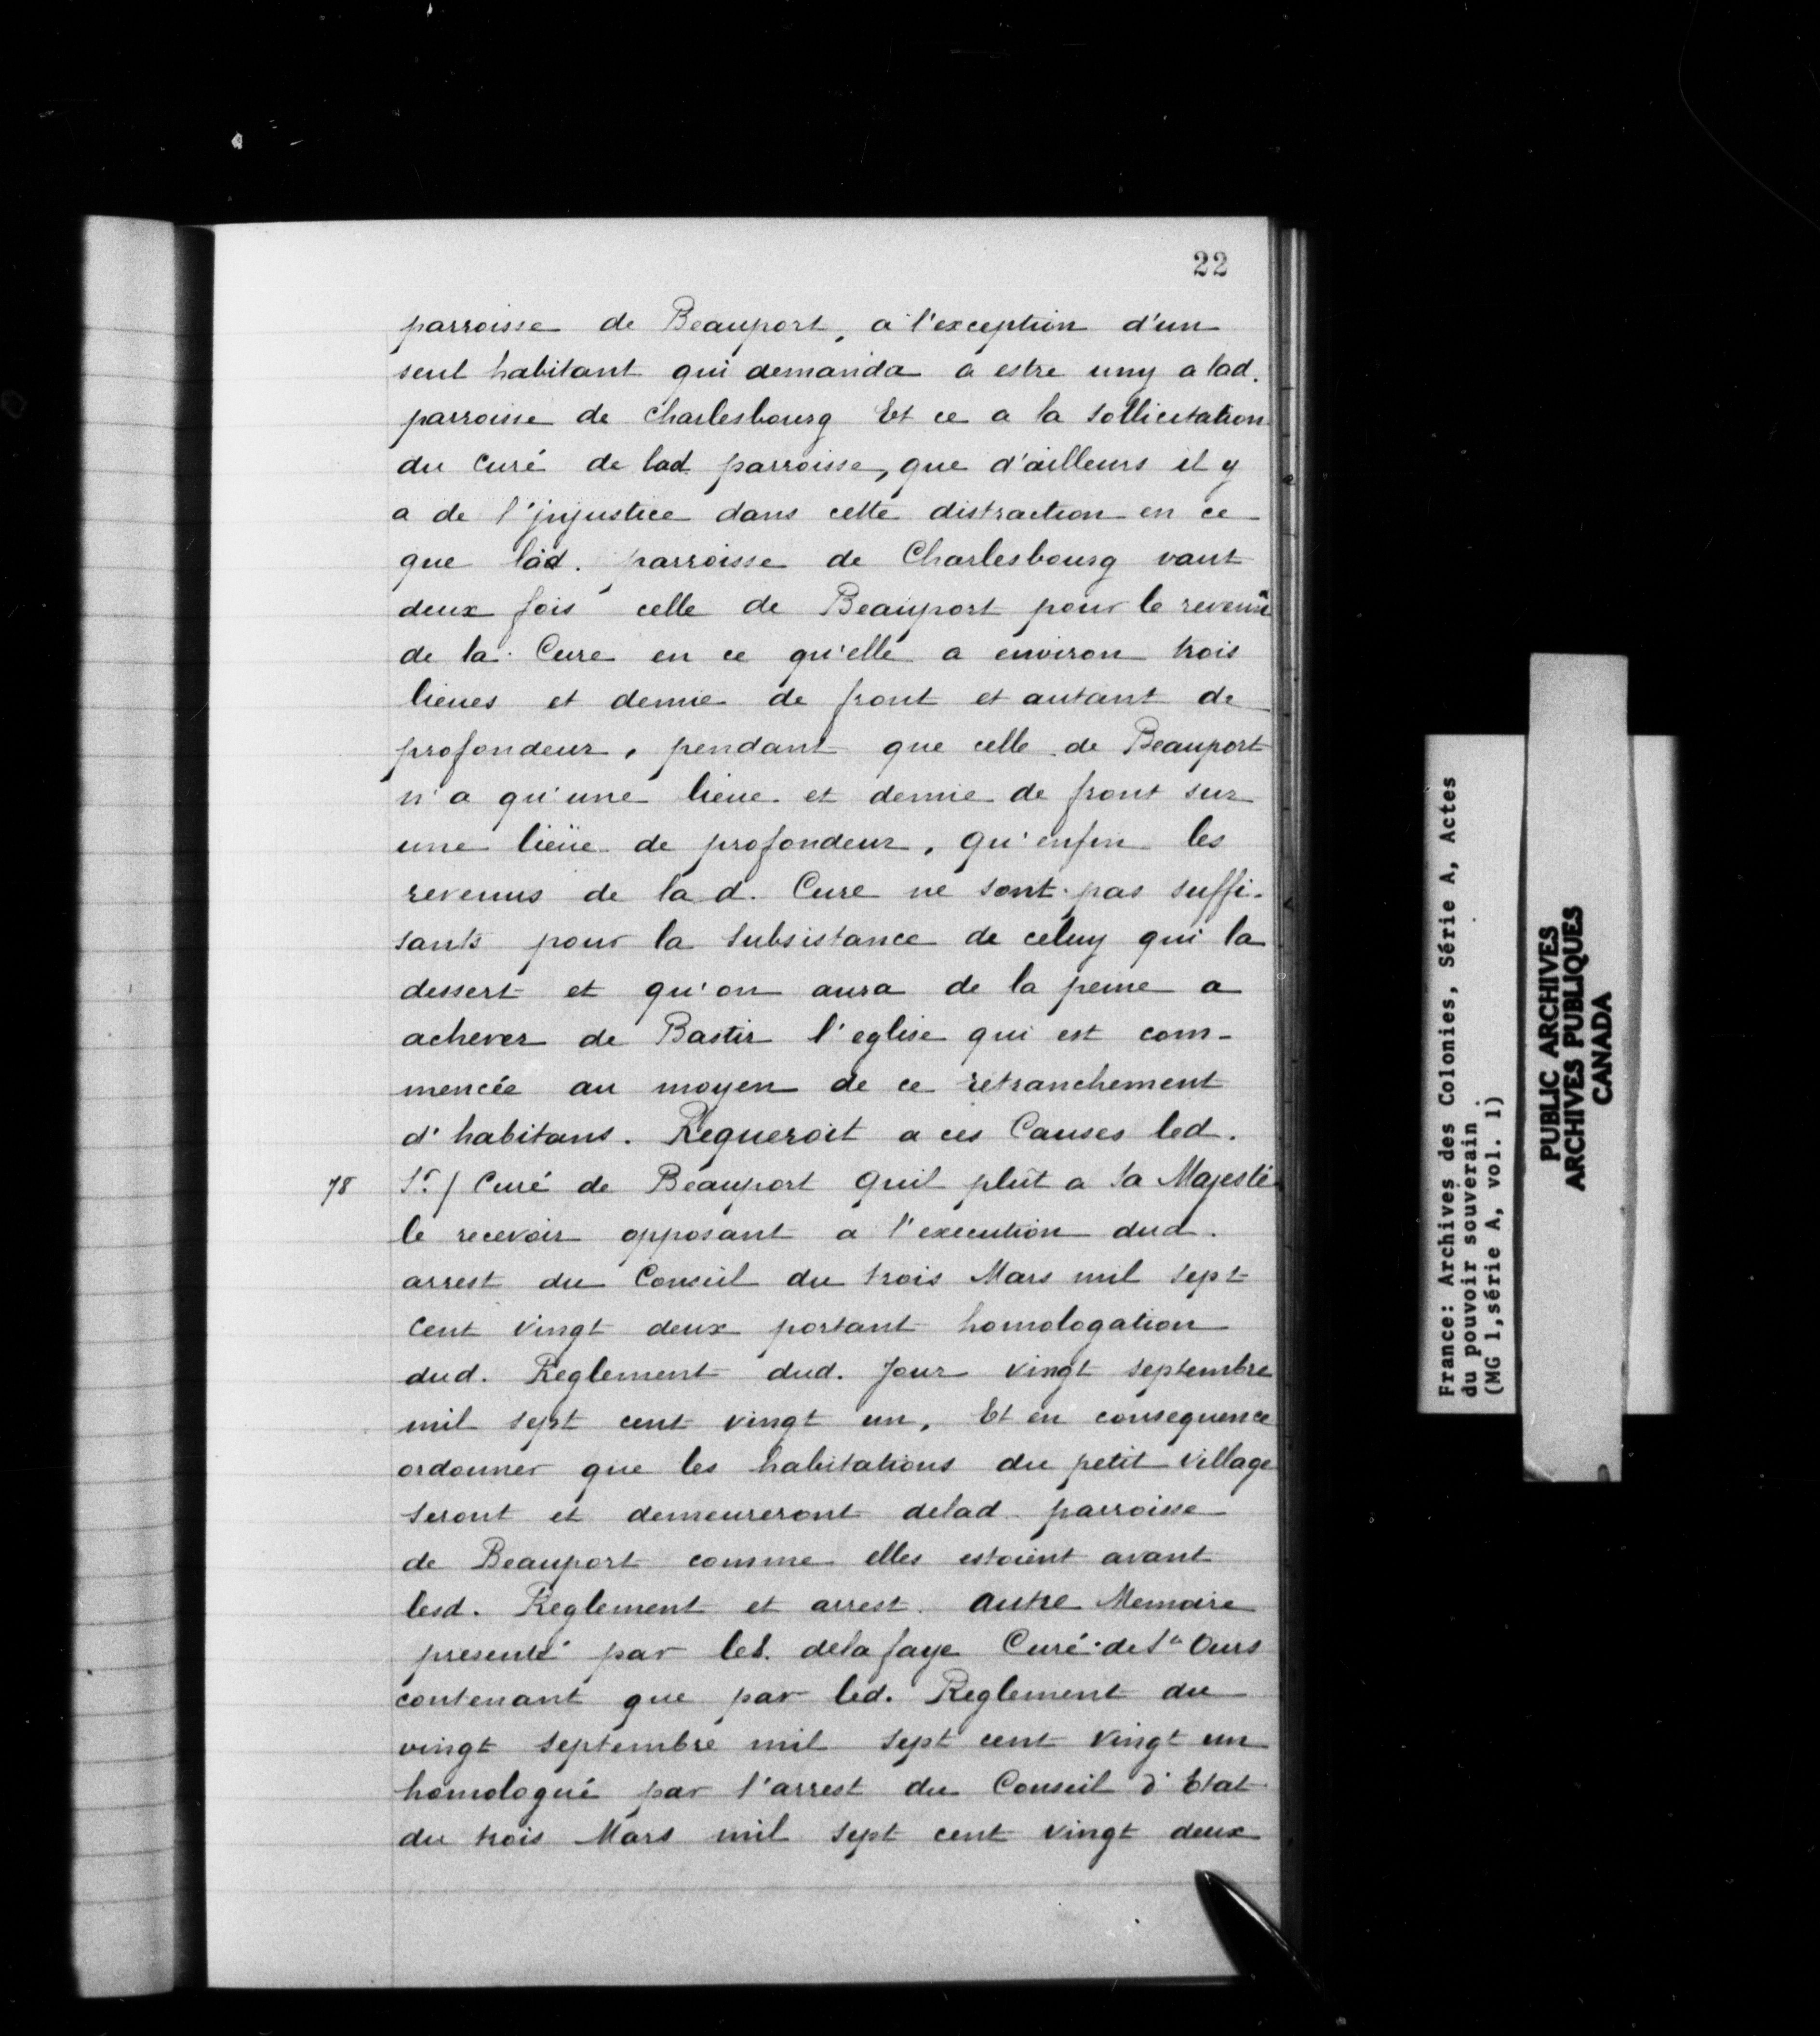 22
parroisse de Beauport, a l'exception d'un
seul habitant qui demanda a estre uny a lad.
parroisse de charlesbourg Et ce a la sollicitation
du Curé de lad parroisse, que d'ailleurs il y
a de l'jnjustice dans cette distraction en ce
que lad. parroisse de Charlesbourg vaut
deux fois celle de Beauport pour le revenu
de la Cure en ce qu'elle a environ trois
lieues et demie de front et autant de
profondeur, pendant que celle de Beauport
n'a qu'une lieue et demie de front sur
une lieüe de profondeur, qu'enfin les
revenus de la d. Cure ne sont pas suffi-
sants pour la subsistance de celuy qui la
dessert et qu'on aura de la peine a
achever de Bastir l'eglise qui est com-
mencée au moyen de ce retranchement
d'habitans. Requeroit a ces Causes led.
78 Sr. / Curé de Beauport quil plût a Sa Majesté
le recevoir opposant a l'execution dud.
arrest du Conseil du trois Mars mil sept
Cent vingt deux portant homologation
dud. Reglement dud. Jour vingt septembre
mil sept cent vingt un, Et en consequence
ordonner que les habitations du petit village
seront et demeureront delad parroisse
de Beauport comme elles estoient avant
lesd. Reglement et arrest. autre Memoire
presenté par leS. delafaye Curé de St Ours
contenant que par led. Reglement du
vingt septembre mil sept cent vingt un
homologué par l'arrest du Conseil d'Etat
du trois Mars mil sept cent vingt deux
France: Archives des Colonies, Série A, Actes
du pouvoir souverain.
(MG 1,série A, vol. 1)
PUBLIC ARCHIVES
ARCHIVES PUBLIQUES
CANADA